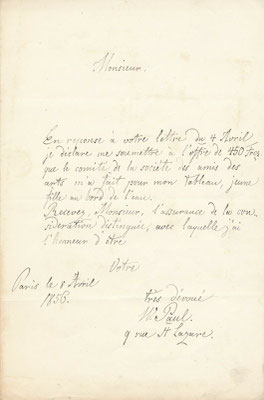 Monsieur.
En reponse à votre lettre du 4 Avril
je déclare me soumettre à l'offre de 450 Frcs
que le comité de la société des amis des
arts m'a fait pour mon tableau, jeune
fille au bord de l'eau.
Recevez, Monsieur, l'assurance de la con
sideration distinguée, avec laquelle j'ai
l'honneur d'être
Votre
Paris le 8 Avril
1856.
très dévoué
Paul.
9 rue St Lazare.